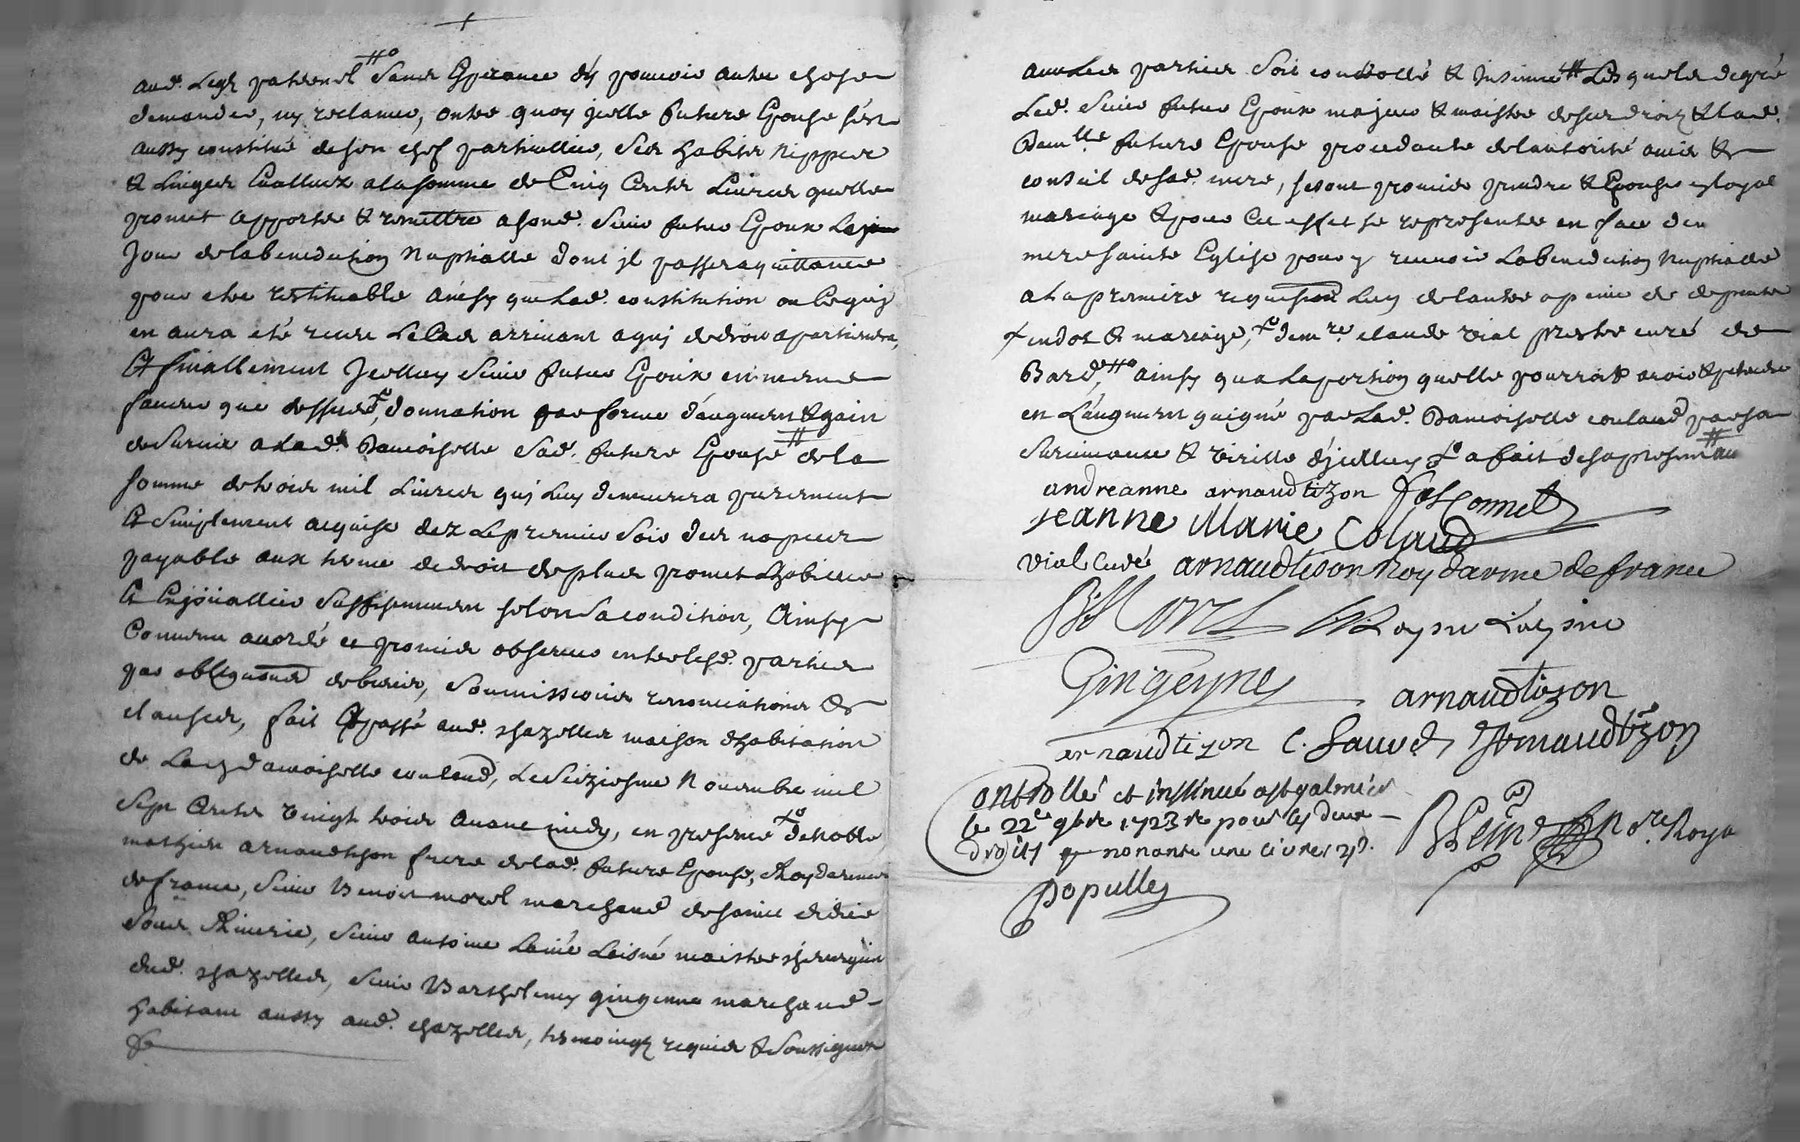 aud. Legz paternel sans Esperance d'y pouvoir autre chose
demander, ny reclamer, outre quoy jcelle future Epouse s'est
aussy constitué de son chef particullier, ses habits nippes
& Linges Evalluez a la somme de Cinq Cents Livres quelle
promet apporter & remettre a sond. Sieur futur Epoux Le
Jour de la benediction Nuptialle dont jl passera quittance
pour etre restituable ainsy que Lad. constitution ou ce quj
en aura eté receu Le Cas arrivant a quj de droit apartiendra,
Et finallement Jcelluy Sieur futur Epoux en mesme
faveur que dessus, donnation par forme d'augment & gain
de survie a Lad. Damoiselle Sad. future Epouse de la
somme de trois mil Livres quj Luy demeurera purement
Et simplement acquise dez Le premier soir des nopces
payable aux terme de droit de plus promet L'habiller
Et Enjoüaller suffisamment selon sa condition, Ainsy
Convenu accordé et promis observer entre lesd. parties
par obligations de biens, soumissions renonciations &
clauses, fait & passé aud. chazelles maison d'habitation
de Lad. damoiselle coulaud, Le seiziesme Novembre mil
sept Cents vingt trois avant midy, en presence de noble
mathieu arnaudtizon frere de lad. future Epouse, Roy d'armes
de france, sieur Benoit morel marchand de saint didier
sous Riverie, sieur antoine Lainé Laisné maistre chirurgien
dud. chazelles, sieur Barthelemy gingenne marchand
habitant aussy aud. chazelles, temoingz requis & soussignez
avec Les parties soit controllé & Insinué Les quels degré
Led. sieur futur Epoux majeur & maistre de ses droits & Lad.
Dam.lle future Epouse procedante de l'autorité avis &
conseil de sad. mere, se sont promis prendre & Epouser en loyal
mariage & pour cet effet se representer en face de n.
mere sainte Eglise pour y recevoir La benediction Nuptialle
a La premiere requisition L'un de l'autre a peine de de
en dot & mariage, de m.re claude vial prestre curé de
Bard, ainsy que La portion quelle pourroit avoir & pretendre
en L'augment gaigné par Lad. Damoiselle coulaud par sa
survivance & virille d'jcelluy a fait de sa presente
andréanne arnaudtizon
jeanne Marie Colaud
vial curé arnaudtison Roy darme de france
B Morel Laysné Laisné
Gingeyne
arnaudtizon
arnaudtizon C. Sauved arnaudtizon
Controllé et insinué a st galmier
le 22e 9bre 1723 re pour les deux
droits nonante une livres
populle
Nore. Royal